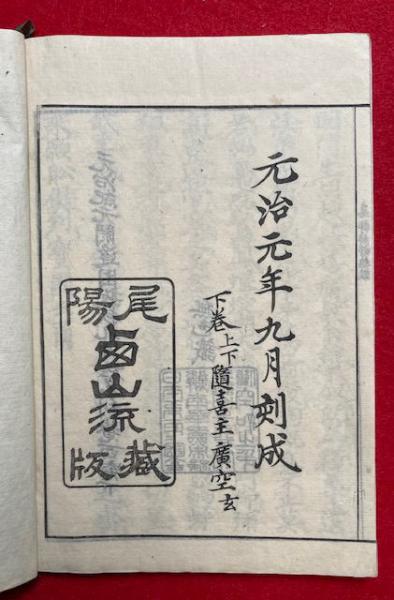 元治元年九月刻成
下卷上下隨喜主廣空玄
尾陽
西山流
藏版